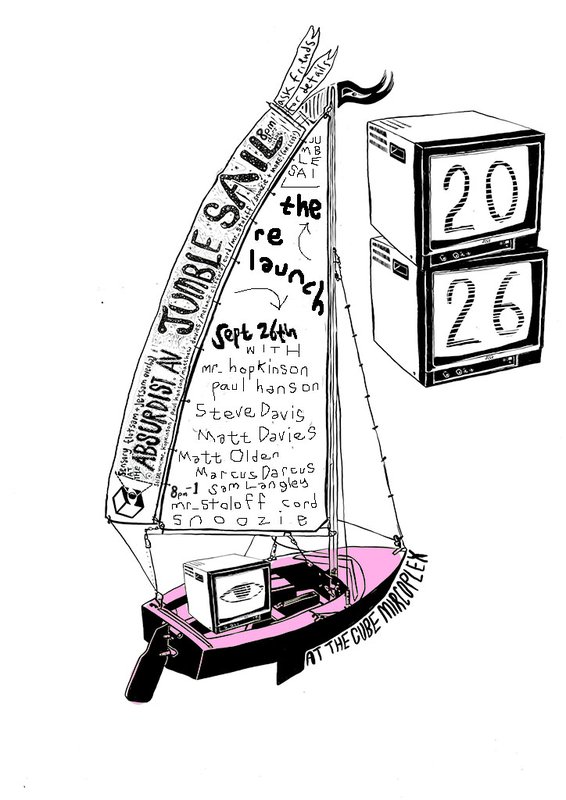 ask friends
for details
JUMBLE SAIL
8pm
sensory flotsam + jetsam overlay
AT
THE
ABSURDIST AV
JUMBLE
SAIL
the
re
launch
Sept 26th
WITH
mr_hopkinson
paul hanson
Steve Davis
Matt Davies
Matt Olden
Marcus Darcus
8pm-1 Sam Langley
mr_stoloff cord
snoozie
20
26
AT THE CUBE MIRCOPLEX